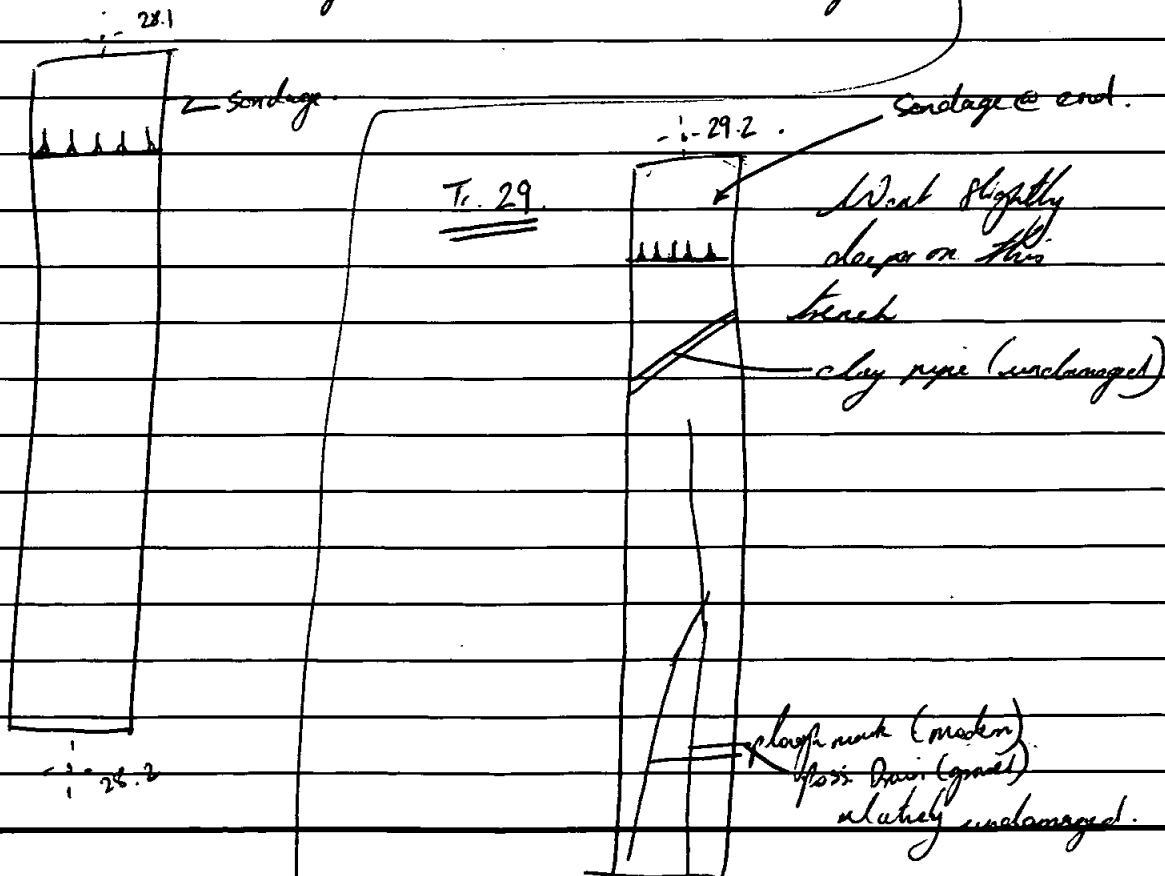 28.1
sondage.
28.2
Tr. 29.
29.2
Sondage @ end.
Went slightly
deeper on this
trench
clay pipe (undamaged)
plough mark (modern)
poss. Drain (gravel)
relatively undamaged.